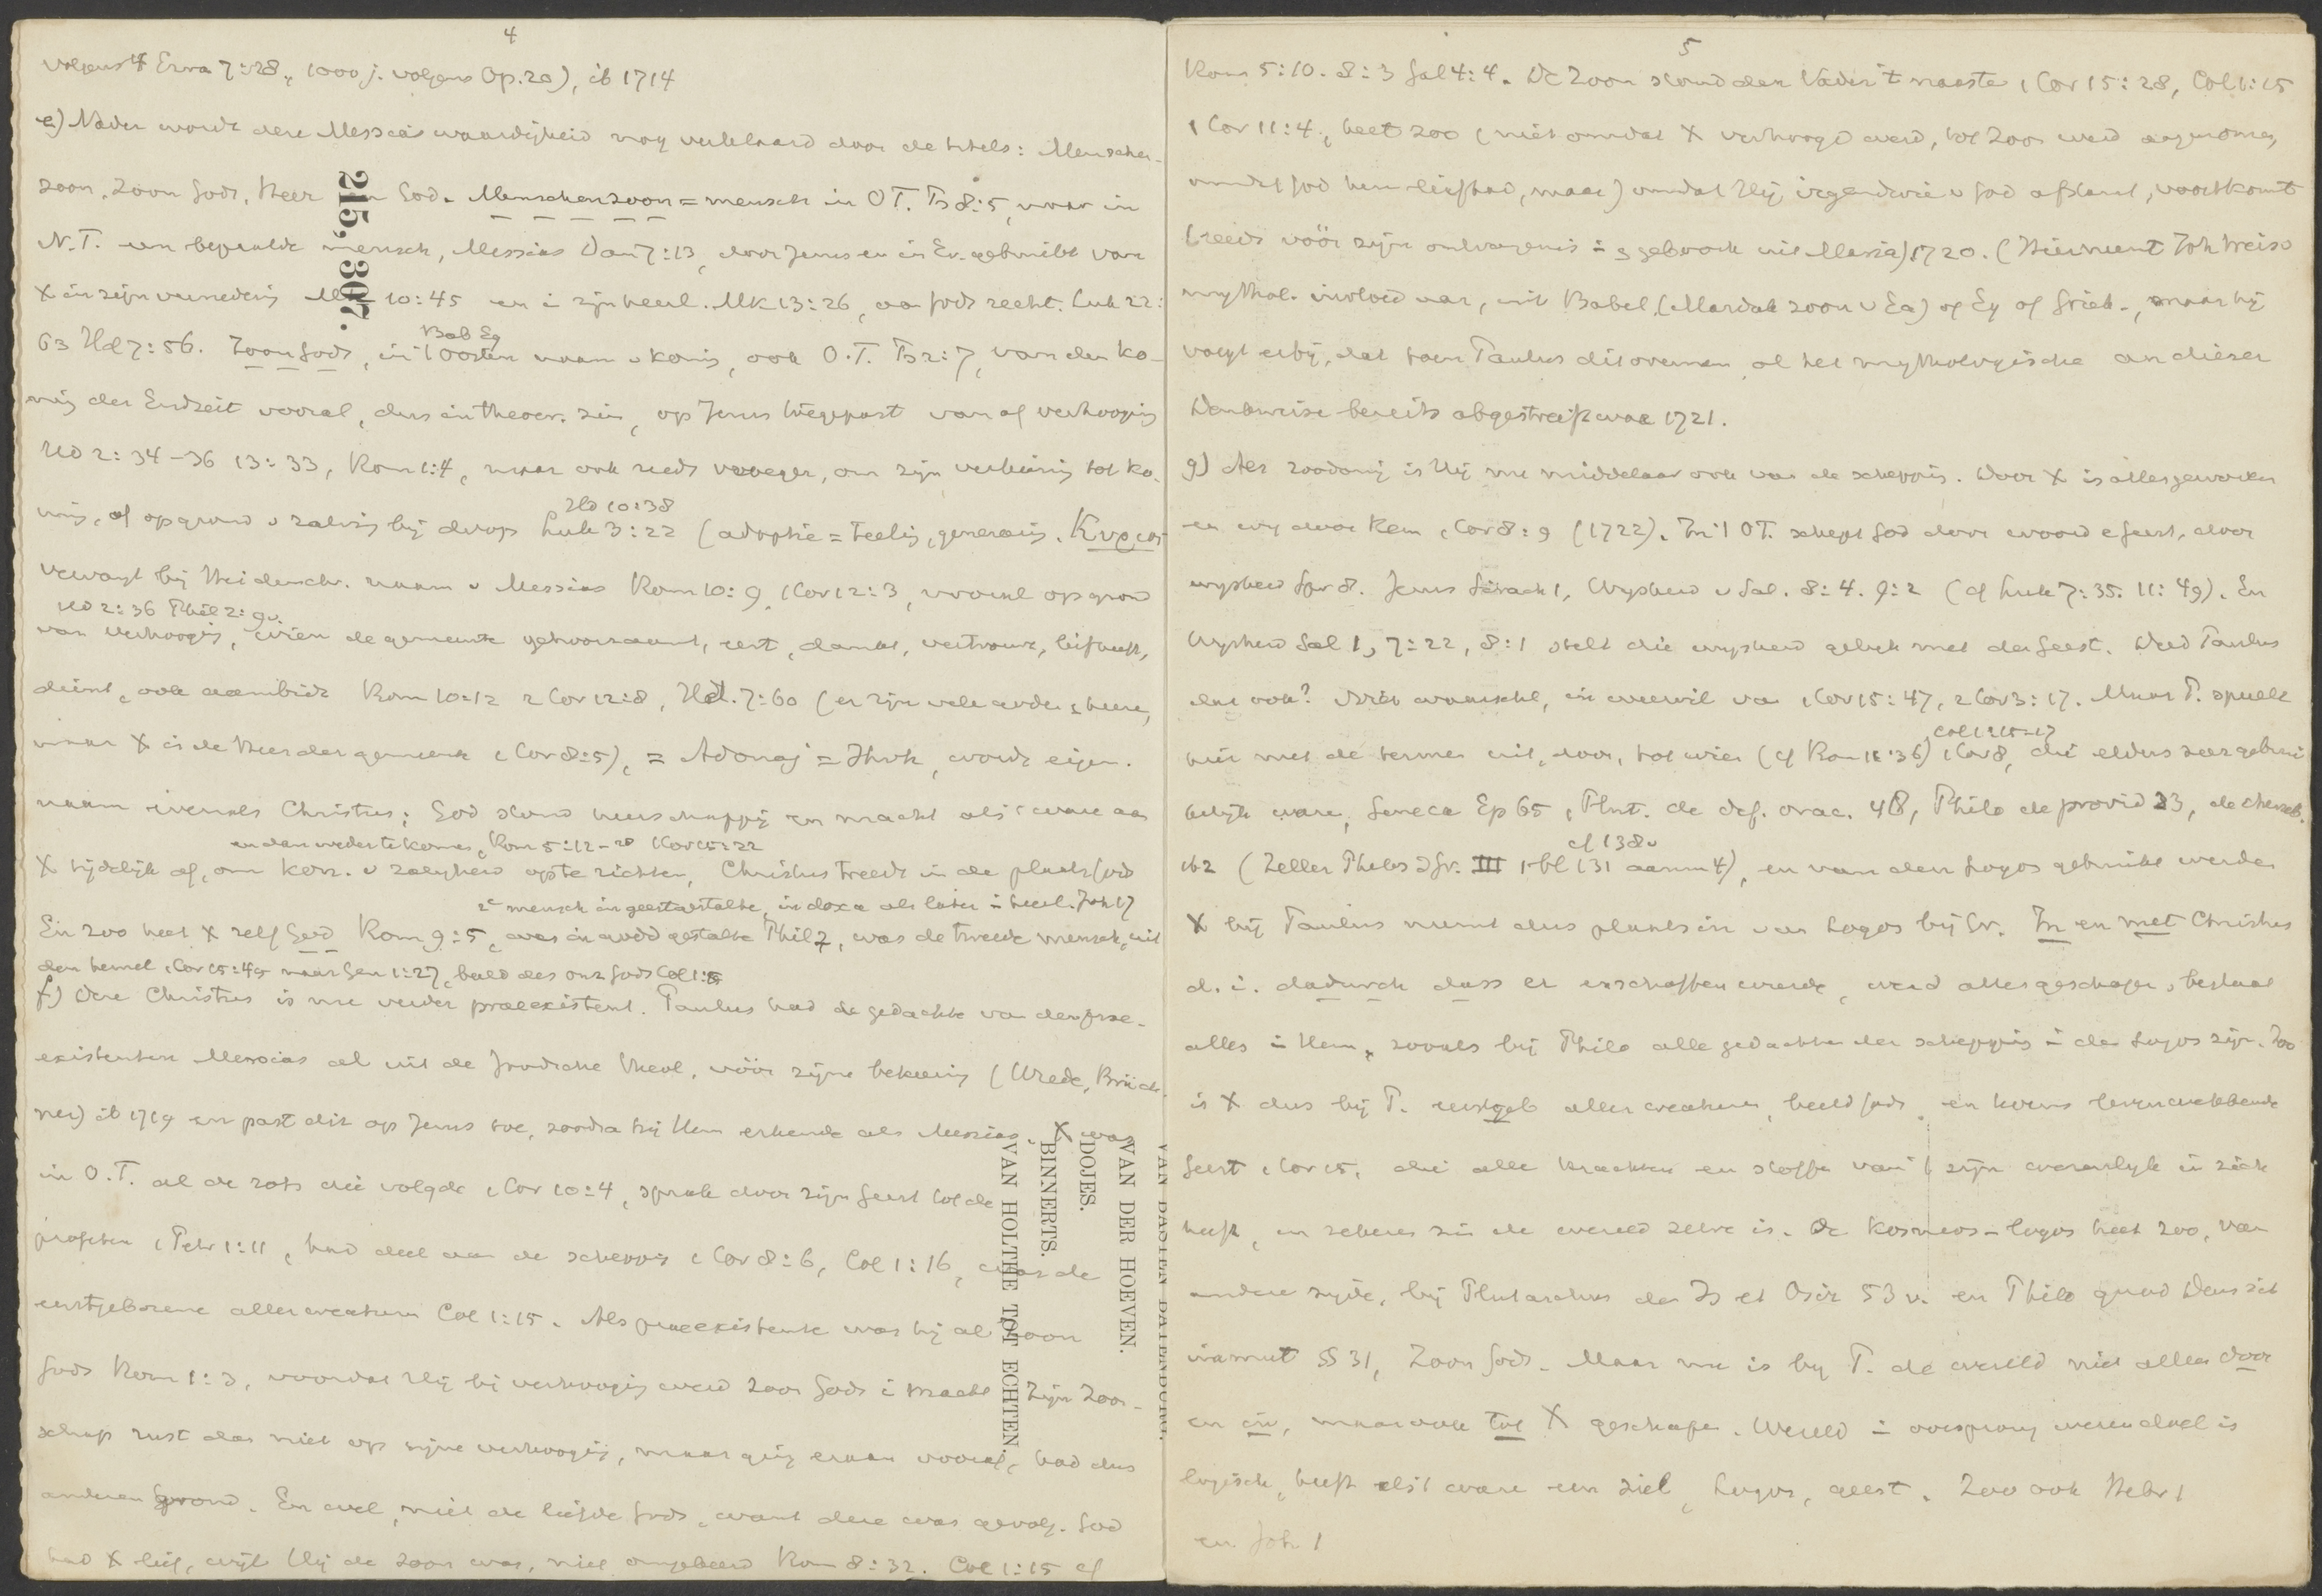 4
volgens 4 Ezra 7:28, 1000 j. volgens Op. 20), ib 1714
e) Nader wordt deze Messias waardigheid nog verklaard door de titels: Menschen-
zoon, Zoon Gods, Heer en God. Menschenzoon = mensch in O T. Ps 8:5, maar in
N.T. een bepaalde mensch, Messias Dan 7:13, door Jezus en in Ev. gebruikt van
X in zijn vernedering Mk 10:45 en i zijn heerl. Mk 13:26, aan Gods recht. Luk 22:
Bab Eg
63 Hd 7:56. Zoon Gods, in 't Oosten naam v konig, ook O.T. Ps 2:7, van den ko-
nig der Endzeit vooral, dus in theocr. zin, op Jezus toegepast van af verhooging
Hd 2:34-36 13:33, Rom 1:4, maar ook reeds vroeger, om zijn verkiezing tot ko-
Hd 10:38
nig, of op grond v zalving bij doop Luk 3:22 (adoptie = teeling, generatie. Κυριος
vervangt bij Heidenchr. naam v Messias Rom 10:9, 1 Cor 12:3, vooral op grond
Hd 2:36 Phil 2:9v.
van verhooging, wien de gemeente gehoorzaamt, eert, dankt, vertrouwt, liefheeft,
dient, ook aanbidt Rom 10:12 2 Cor 12:8, Hd. 7:60 (er zijn vele andere heeren,
maar X is de Heer der gemeente 1 Cor 8:5), = Adonaj = Jhvh, wordt eigen-
naam evenals Christus; God stond heerschappij en macht als 't ware aan
en dan weder te komen, Rom 5:12-20 1 Cor 15:22
X tijdelijk af, om kon. v zaligheid op te richten, Christus treedt in de plaats Gods
2e mensch in geestgestalte, in doxa als later in heerl. Joh 17
En zoo heet X zelf God Rom 9:5, was in goddgestalte Phil 2, was de tweede mensch, uit
den hemel 1 Cor 15:45 naar Gen 1:27, beeld des onz Gods Col 1:15
f) Deze Christus is nu verder praeexistent. Paulus had de gedachte van den prae-
existenten Messias al uit de Joodsche theol. vóór zijne bekeering (Wrede, Brück-
ner) ib 1719 en past dit op Jezus toe, zoodra hij Hem erkende als Messias. X was
in O.T. al de rots die volgde 1 Cor 10:4, sprak door zijn Geest tot de
profeten 1 Petr 1:11, had deel aan de schepping 1 Cor 8:6, Col 1:16, was de
eerstgeborene aller creaturen Col 1:15. Als praeexistente was hij al Zoon
Gods Rom 1:3, voordat Hij bij verhooging werd Zoon Gods i macht. Zijn Zoon-
schap rust dan niet op zijne verhooging, maar ging eraan vooraf, had dus
anderen grond. En wel, niet de liefde Gods, want deze was gevolg. God
had X lief, wijl Hij de Zoon was, niet omgekeerd Rom 8:32. Col 1:15 cf
215,307.
VAN DER HOEVEN.
DOJES.
BINNERTS.
VAN HOLTHE TOT ECHTEN.
5
Rom 5:10. 8:3 Gal 4:4. De Zoon stond den Vader 't naaste 1 Cor 15:28, Col 1:15
1 Cor 11:4, heet zoo (niet omdat X verhoogd werd, tot Zoon werd aangenomen,
omdat God hem liefhad, maar) omdat Hij irgendwie v God afstamt, voortkomt
(reeds vóór zijn ontvangenis en geboorte uit Maria) 1720. (Hier neemt Joh Weiss
mythol. invloed aan, uit Babel. (Marduk zoon v Ea) of Eg of Griek., maar hij
voegt erbij, dat toen Paulus dit overnam, al het mythologische an dieser
Denkweise bereits abgestreift war 1721.
g) Als zoodanig is Hij nu middelaar ook van de schepping. Door X is alles geworden
en wij door Hem 1 Cor 8:9 (1722). In 't OT. schept God door woord e geest, door
wijsheid Spr 8. Jezus Sirach 1, Wijsheid v Sal. 8:4. 9:2 (cf Luk 7:35. 11:49). En
Wijsheid Sal 1, 7:22, 8:1 stelt die wijsheid gelijk met den Geest. Deed Paulus
dat ook? Niet waarschl, in weerwil van 1 Cor 15:47, 2 Cor 3:17. Maar P. spreekt
Col 1:15-17
hier met de termen uit, door, tot wien (cf Rom 11:36) 1 Cor 8, die elders zeer gebrui-
kelijk waren, Seneca Ep 65, Plut. de def. orac. 48, Philo de provid 23, de cherub.
cf 138v
162 (Zeller Philos d Gr. III 1. bl 131 aanm 4), en van den Logos gebruikt werden
X bij Paulus neemt dus plaats in van Logos bij Gr. In en met Christus
d. i. dadurch dass er erschaffen wurde, werd alles geschapen, bestaat
alles in Hem, zooals bij Philo alle gedachten der schepping in den Logos zijn. Zoo
is X dus bij P. eerstgeb aller creaturen, beeld Gods, en tevens levenwekkende
Geest 1 Cor 15, die alle krachten en stoffen van 't zijn wezenlijk in zich
heeft, en zekeren zin de wereld zelve is. De Kosmos-logos heet zoo, van
andere zijde, bij Plutarchus de Is et Osir 53 v. en Philo quod Deus sit
immut §§ 31, Zoon Gods. Maar nu is bij P. de wereld niet alleen door
en in, maar ook tot X geschapen. Wereld in oorsprong wezen doel is
logisch, heeft als 't ware een ziel, Logos, geest. Zoo ook Hebr 1
en Joh. 1